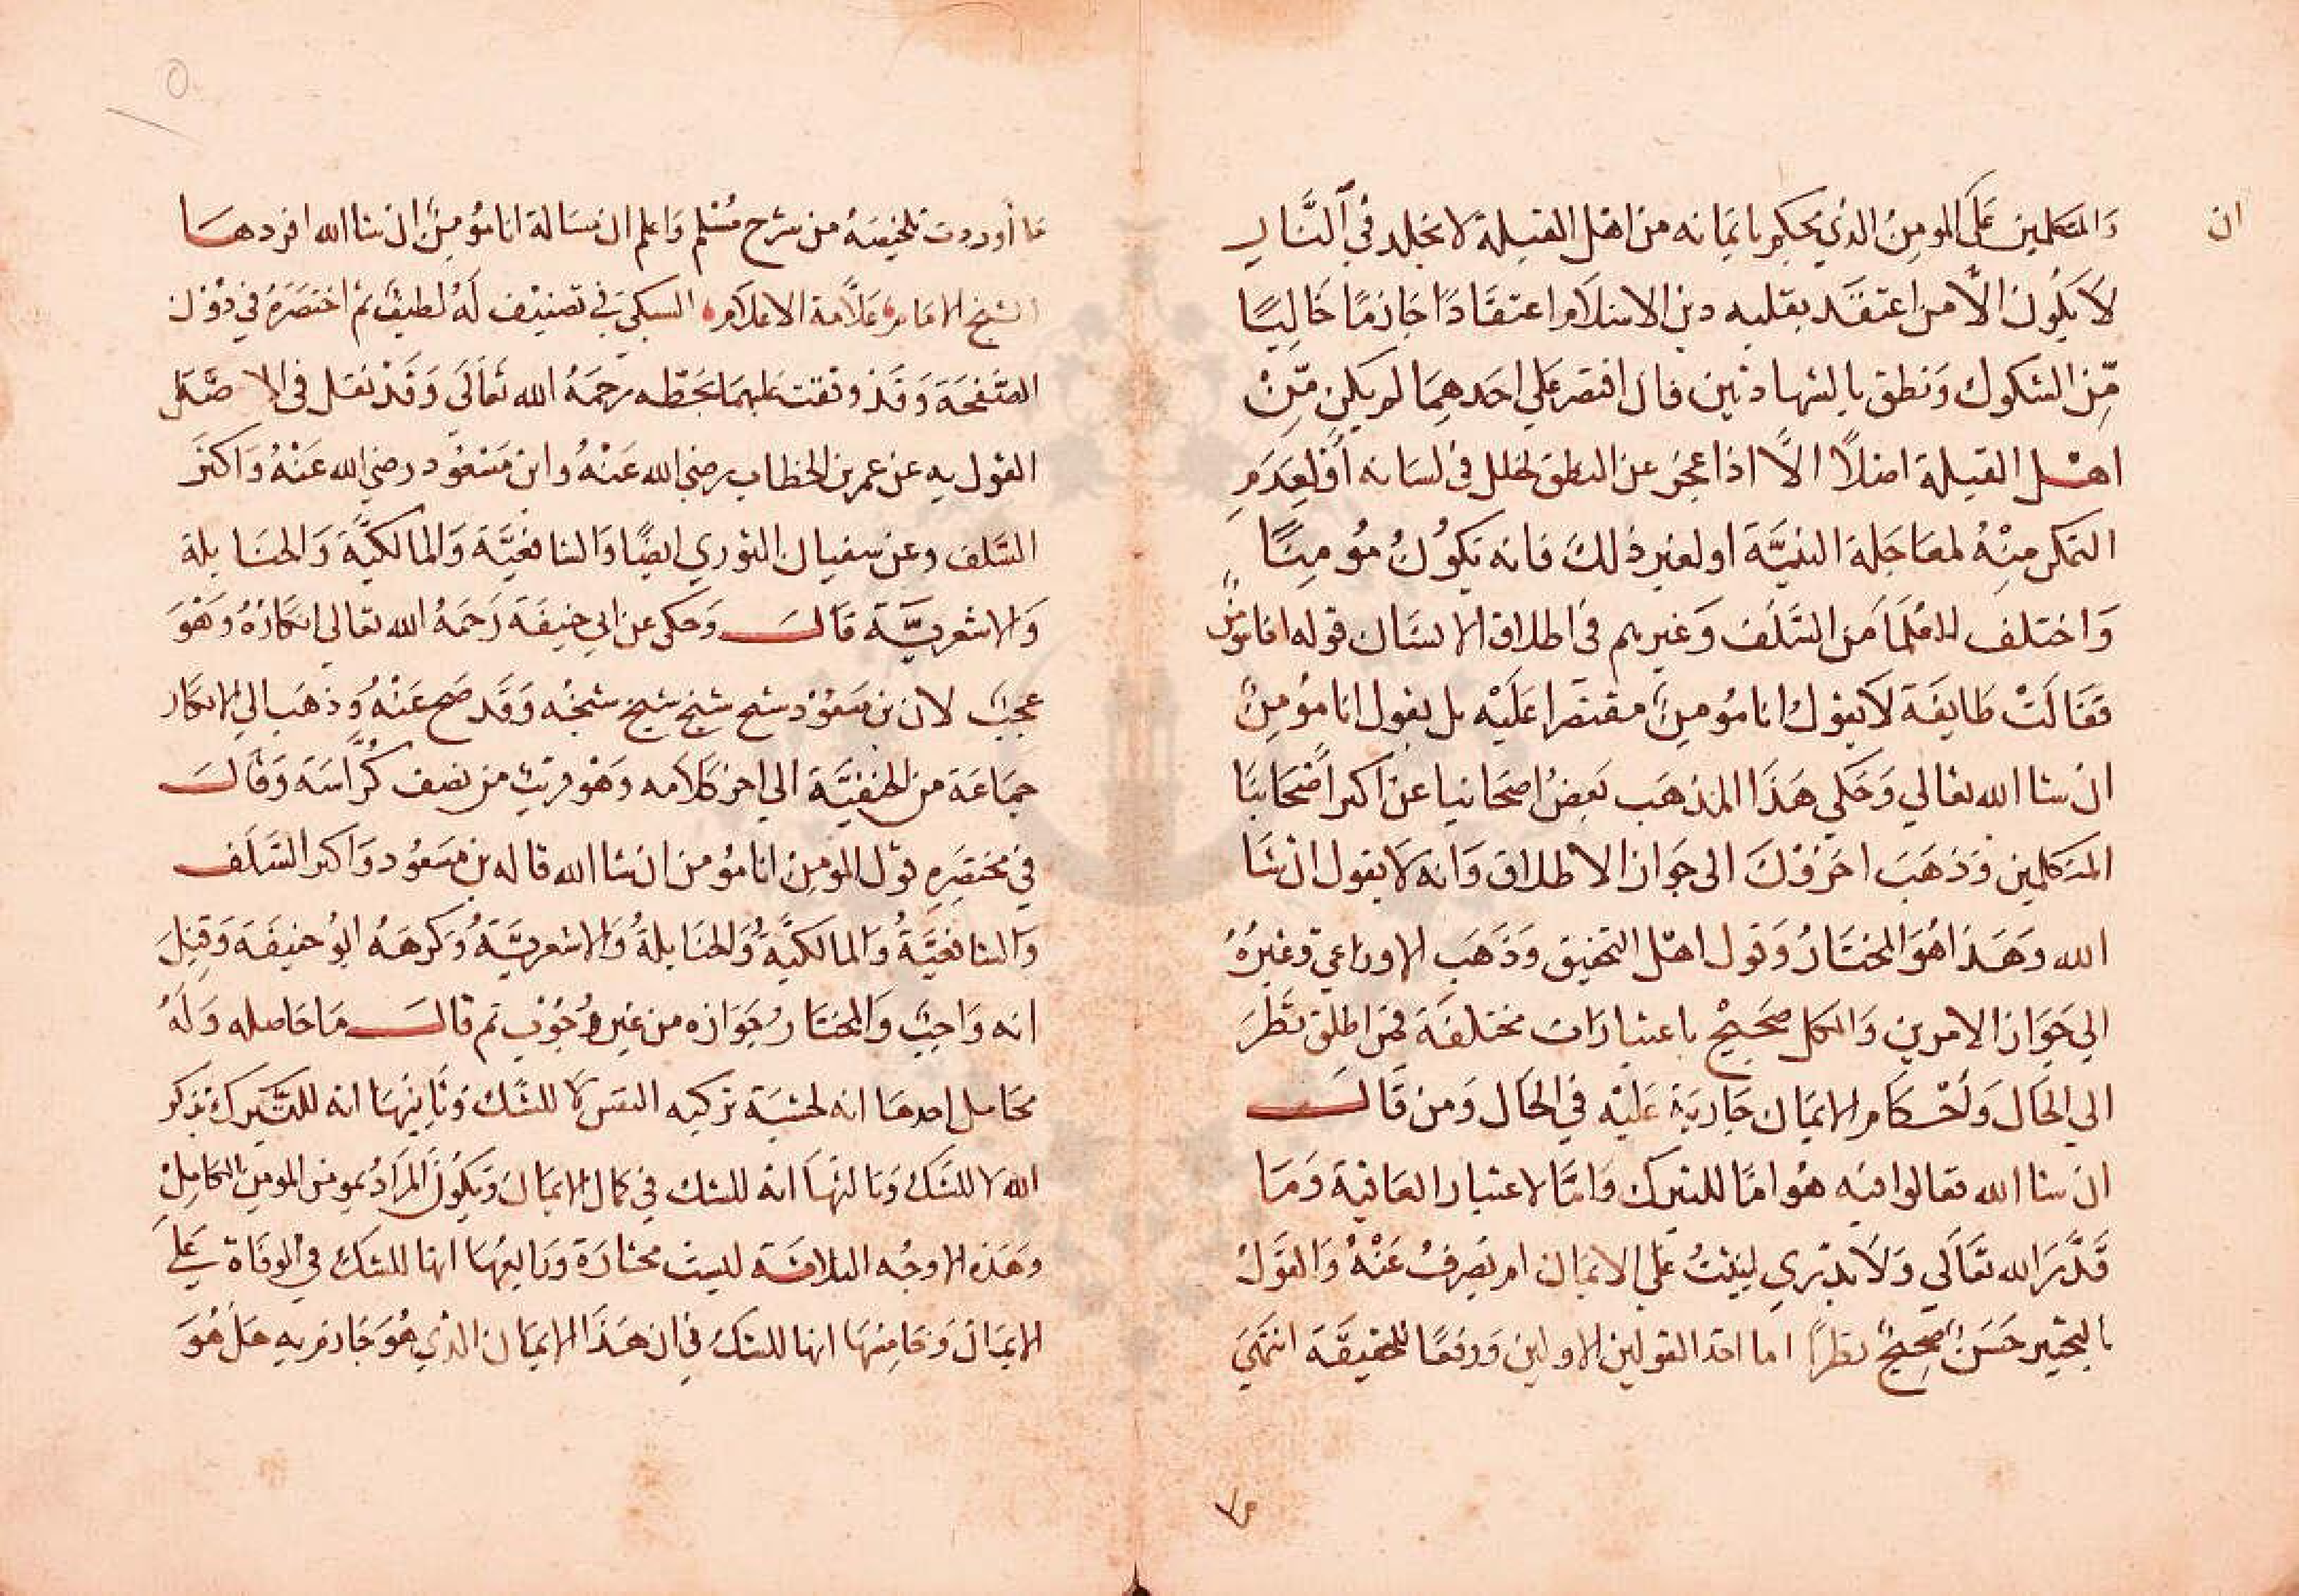 ان
والمتكلمين على المومن الذي يحكم بايمانه من اهل القبلة لا يخلد في النار
لا يكون الا من اعتقد بقلبه دين الاسلام اعتقادا جازما خاليا
من الشكوك ونطق بالشهادتين فان اقتصر علي احدهما لم يكن من
اهل القبلة اصلا الا اذا عجز عن النطق لخلل في لسانه او لعدم
التمكن منه لمعاجلة المنية او لغير ذلك فانه يكون مومنا
واختلف العلما من السلف وغيرهم في اطلاق الانسان قوله انا مومن
فقالت طايفة لا يقول انا مومن مقتصرا عليه بل يقول انا مومن
ان شا الله تعالي وحكي هذا المذهب بعض اصحابنا عن اكثر اصحابنا
المتكلمين وذهب اخرون الى جواز الاطلاق وانه لا يقول ان شا
الله وهذا هو المختار وقول اهل التحقيق وذهب الاوزاعي وغيره
الي جواز الامرين والكل صحيح باعتبارات مختلفة فمن اطلق نظر
الي الحال واحكام الايمان جارية عليه في الحال ومن قال
ان شا الله فقالوا فيه هو اما للتبرك واما لاعتبار العاقبة وما
قدر الله تعالي ولا يدري ايثبت علي الايمان ام يصرف عنه والقول
بالتخيير حسن صحيح نظرا اما اخذ القولين الاولين ورفعا للحقيقة انتهي
ما أوردت تلخيصه من شرح مسلم واعلم ان مسالة انا مؤمن ان شا الله افردها
الشيخ الامام علامة الاعلام السبكي في تصنيف له لطيف ثم اختصره في دون
الصفحة وقد وقفت عليهما بخطه رحمه الله تعالي وقد نقل في الاصل
القول به عن عمر بن الخطاب رضي الله عنه وابن مسعود رضي الله عنه واكثر
السلف وعن سفيان الثوري ايضا والشافعية والمالكية والحنابلة
والاشعرية قال وحكي عن ابي حنيفة رحمه الله تعالي انكاره وهو
عجيب لان بن مسعود شيخ شيخ شيخ شيخه وقد صح عنه وذهب الي الانكار
جماعة من الحنفية الي اخر كلامه وهو قريب من نصف كراسة وقال
في مختصره قول المومن انا مومن ان شا الله قاله بن مسعود واكثر السلف
والشافعية والمالكية والحنابلة والاشعرية وكرهه ابو حنيفة وقيل
انه واجب والمختار جوازه من غير وجوب ثم قال ما حاصله وله
محامل احدها انه لخشية تزكيه النفس لا للشك وثانيها انه للتبرك بذكر
الله لا للشك وثالثها انه للشك في كمال الايمان ويكون المراد بمومن المومن الكامل
وهذه الاوجه الثلاثة ليست مختارة ورابعها انها للشك في الوفاة علي
الايمان وخامسها انها للشك في ان هذا الايمان الذي هو جازم به هل هو